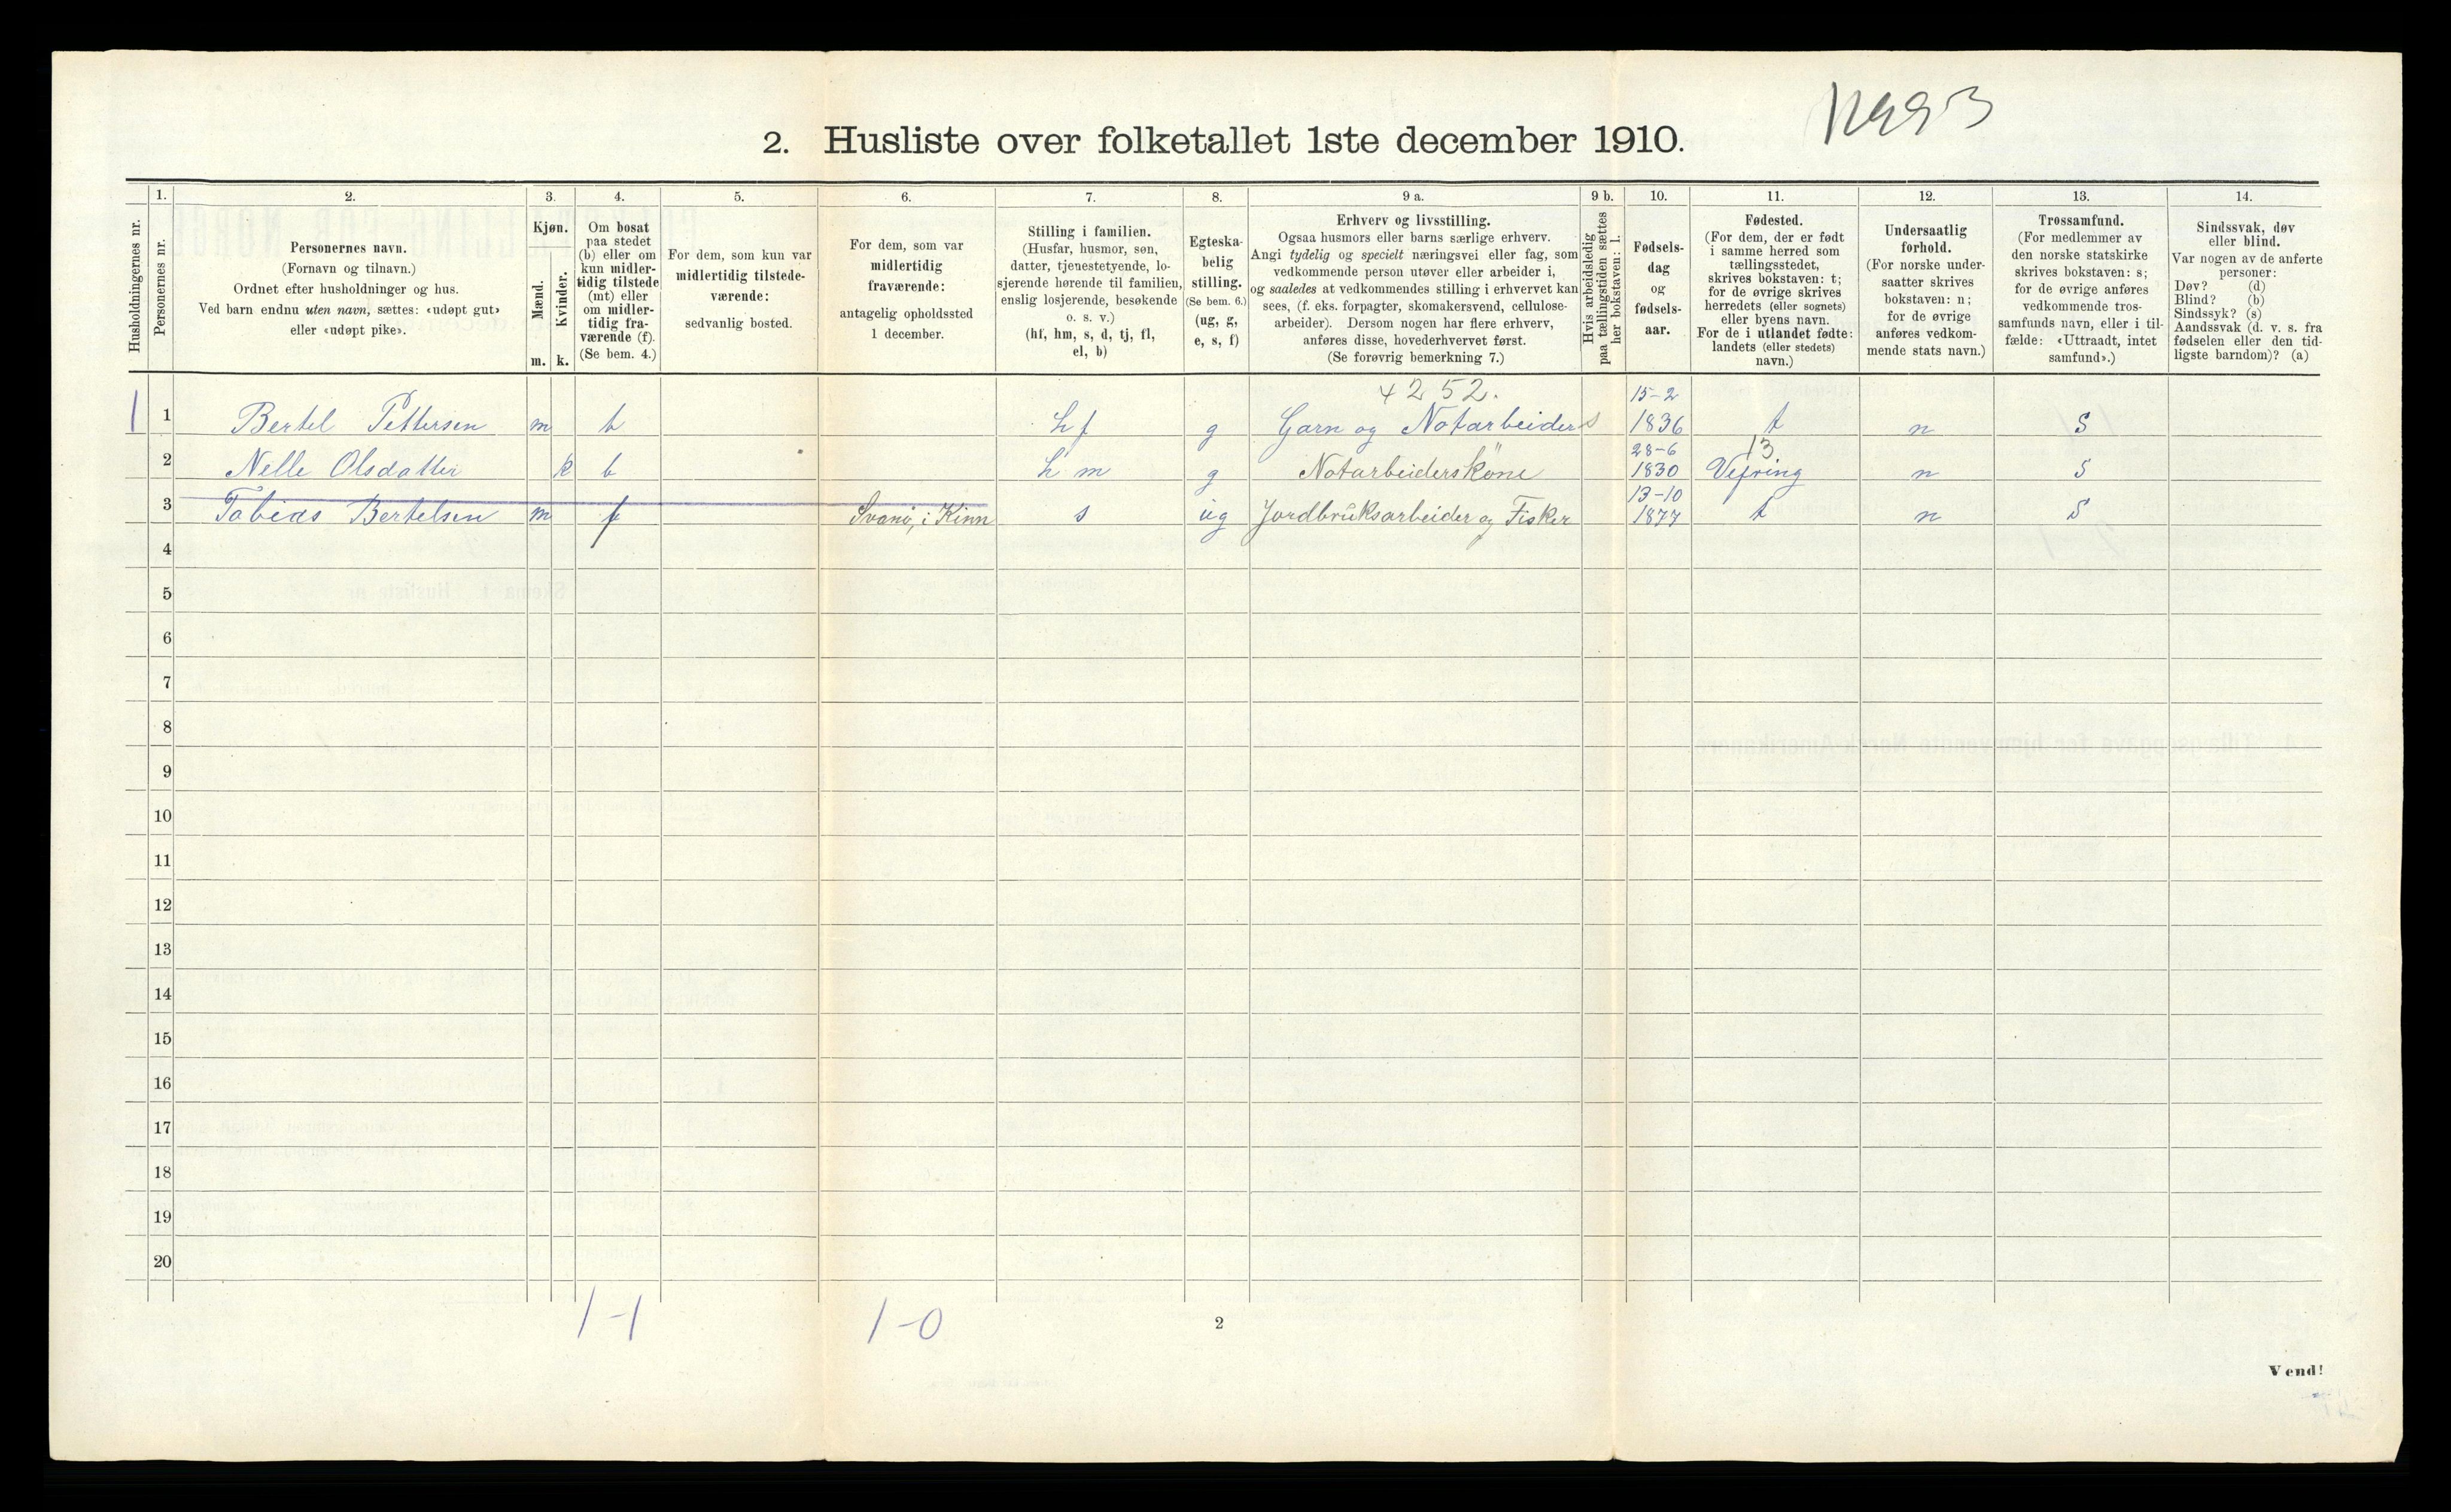 2. Husliste over folketallet 1ste december 1910.
Husholdningernes nr.
1. Personernes nr.
2. Personernes navn.
(Fornavn og tilnavn.)
Ordnet efter husholdninger og hus.
Ved barn endnu uten navn, sættes: «udøpt gut»
eller «udøpt pike».
3. Kjøn.
Mænd. m.
Kvinder. k.
4. Om bosat
paa stedet
(b) eller om
kun midler-
tidig tilstede
(mt) eller
om midler-
tidig fra-
værende (f).
(Se bem. 4.)
5. For dem, som kun var
midlertidig tilstede-
værende:
sedvanlig bosted.
6. For dem, som var
midlertidig
fraværende:
antagelig opholdssted
1 december.
7. Stilling i familien.
(Husfar, husmor, søn,
datter, tjenestetyende, lo-
sjerende hørende til familien,
enslig losjerende, besøkende
o. s. v.)
(hf, hm, s, d, tj, fl,
el, b)
8. Egteska-
belig
stilling.
(Se bem. 6.)
(ug, g,
e, s, f)
9 a. Erhverv og livsstilling.
Ogsaa husmors eller barns særlige erhverv.
Angi tydelig og specielt næringsvei eller fag, som
vedkommende person utøver eller arbeider i,
og saaledes at vedkommendes stilling i erhvervet kan
sees, (f. eks. forpagter, skomakersvend, cellulose-
arbeider). Dersom nogen har flere erhverv,
anføres disse, hovederhvervet først.
(Se forøvrig bemerkning 7.)
9 b. Hvis arbeidsledig
paa tællingstiden sættes
her bokstaven: l.
10. Fødsels-
dag
og
fødsels-
aar.
11. Fødested.
(For dem, der er født
i samme herred som
tællingsstedet,
skrives bokstaven: t;
for de øvrige skrives
herredets (eller sognets)
eller byens navn.
For de i utlandet fødte:
landets (eller stedets)
navn.)
12. Undersaatlig
forhold.
(For norske under-
saatter skrives
bokstaven: n;
for de øvrige
anføres vedkom-
mende stats navn.)
13. Trossamfund.
(For medlemmer av
den norske statskirke
skrives bokstaven: s;
for de øvrige anføres
vedkommende tros-
samfunds navn, eller i til-
fælde: «Uttraadt, intet
samfund».)
14. Sindssvak, døv
eller blind.
Var nogen av de anførte
personer:
Døv? (d)
Blind? (b)
Sindssyk? (s)
Aandssvak (d. v. s. fra
fødselen eller den tid-
ligste barndom)? (a)
4252. 15-2
1 1 Bertel Pettersen m b hf g Garn og Notarbeider s 1836 t n S
28-6 13
2 Nelle Olsdatter k b hm g Notarbeiderskone 1830 Vefring n S
13-10
3 Tobias Bertelsen m f Svanø, i Kinn s ug Jordbruksarbeider og Fisker 1877 t n S
4
5
6
7
8
9
10
11
12
13
14
15
16
17
18
19
20
1-1 1-0
2
Vend!